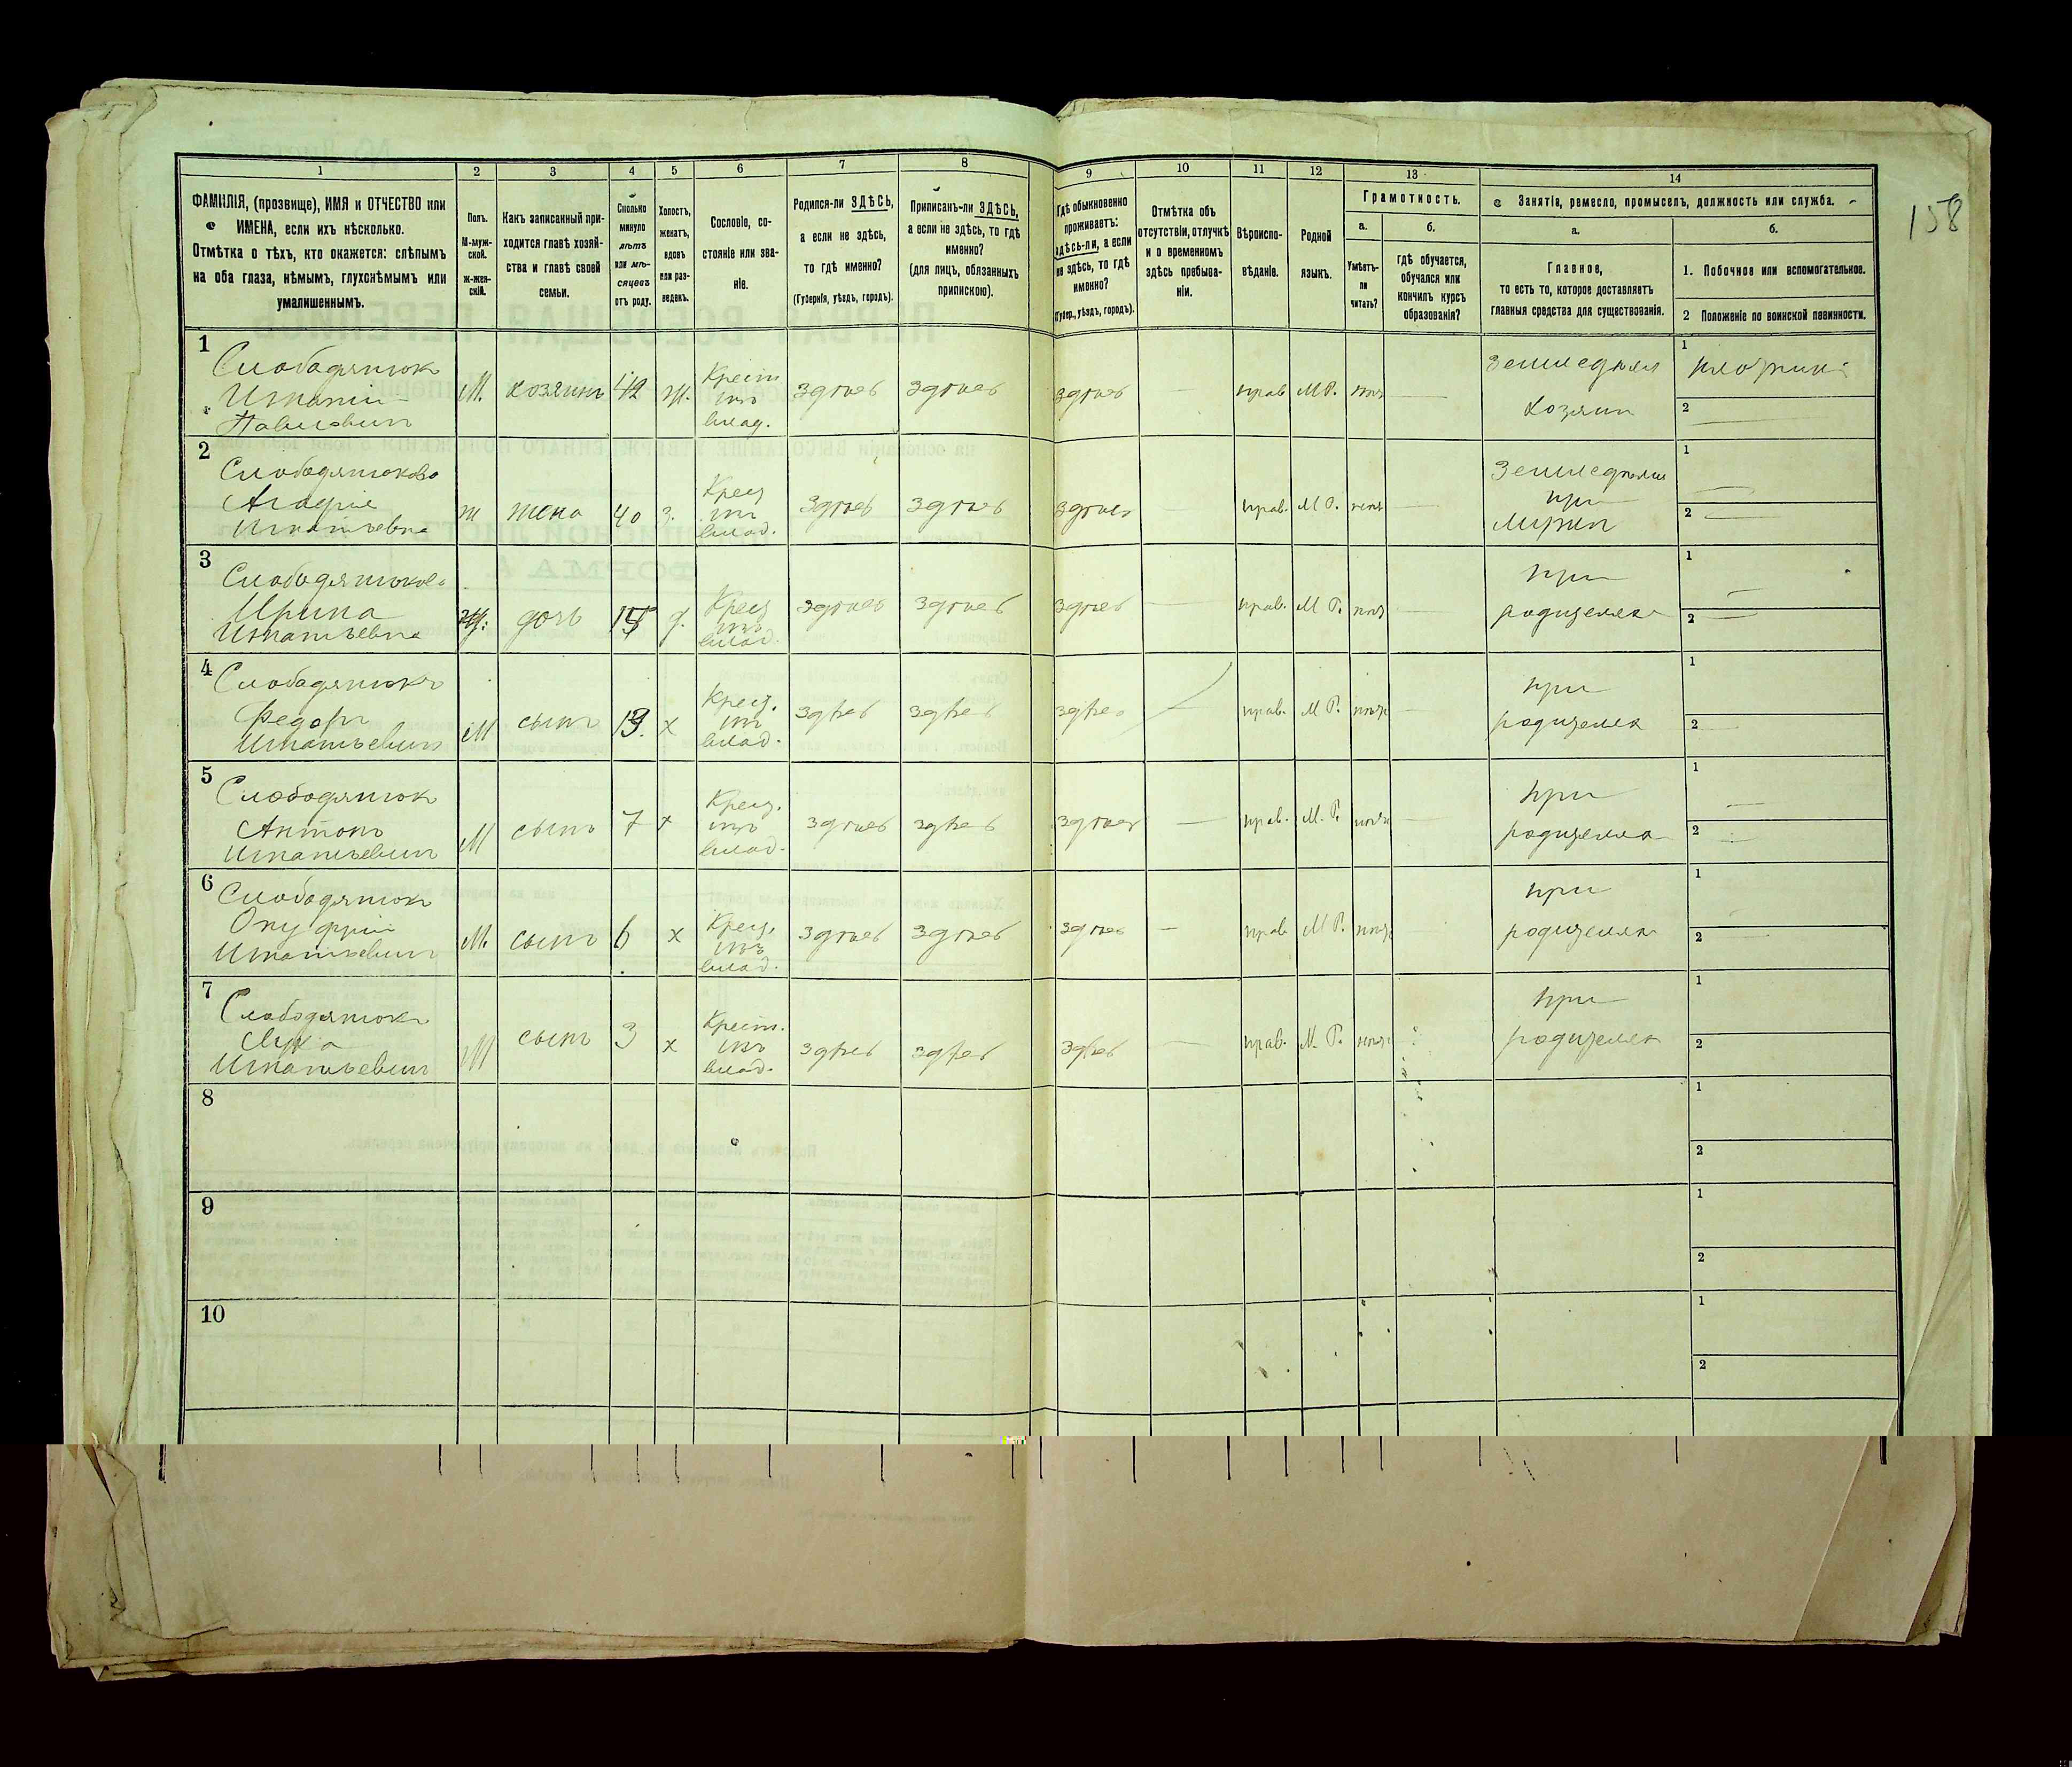 158
1 2 3 4 5 6 7 8 9 10 11 12 13 14
ФАМИЛІЯ, (прозвище), ИМЯ и ОТЧЕСТВО или
ИМЕНА, если ихъ нѣсколько.
Отмѣтка о тѣхъ, кто окажется: слѣпымъ
на оба глаза, нѣмымъ, глухонѣмымъ или
умалишеннымъ.
Полъ.
М-муж-
ской.
ж-жен-
скій.
Какъ записанный при-
ходится главѣ хозяй-
ства и главѣ своей
семьи.
Сколько
минуло
лѣтъ
или мѣ-
сяцевъ
отъ роду.
Холостъ,
женатъ,
вдовъ
или раз-
веденъ.
Сословіе, со-
стояніе или зва-
ніе.
Родился-ли ЗДѢСЬ,
а если не здѣсь,
то гдѣ именно?
(Губернія, уѣздъ, городъ).
Приписанъ-ли ЗДѢСЬ,
а если не здѣсь, то гдѣ
именно?
(для лицъ, обязанныхъ
припискою).
Гдѣ обыкновенно
проживаетъ:
здѣсь-ли, а если
не здѣсь, то гдѣ
именно?
(Губер., уѣздъ, городъ).
Отмѣтка объ
отсутствіи, отлучкѣ
и о временномъ
здѣсь пребыва-
ніи.
Вѣроиспо-
вѣданіе.
Родной
языкъ.
Грамотность.
а.
Умѣетъ-
ли
читать?
б.
гдѣ обучается,
обучался или
кончилъ курсъ
образованія?
Занятія, ремесло, промыселъ, должность или служба.
а.
Главное,
то есть то, которое доставляетъ
главныя средства для существованія.
б.
1. Побочное или вспомогательное.
2 Положеніе по воинской повинности.
1
Слободянюк
Игнатій
Павлович
М. хозяинъ 42 Ж.
Крест
изъ
влад.
здѣсь здѣсь здѣсь — прав М Р.
Земледѣлія
хозяин
1
2
2
Слободянюкова
Агафія
Игнатьевна
ж жена 40 З.
Крест
изъ
влад.
здѣсь здѣсь здѣсь — прав. М Р.
Земледѣлія
при
Мужеѣ
1
2
3
Слободянюкова
Ирина
Игнатьевна
Ж. дочь
Крест
изъ
влад.
здѣсь здѣсь здѣсь — прав. М Р.
при
родителях
1
2
4
Слободянюкъ
Федоръ
Игнатьевич
М сынъ х
Крест.
изъ
влад.
здѣсь здѣсь здѣсь прав. М Р.
при
родителях
1
2
5
Слободянюк
Антонъ
Игнатьевич
М сынъ 7 х
Крест.
изъ
влад.
здѣсь здѣсь здѣсь — прав. М. Р.
при
родителях
1
2
6
Слободянюк
Онуфрій
Игнатьевич
М. сынъ 6 х
Крест.
изъ
влад.
здѣсь здѣсь здѣсь — прав М Р.
при
родителях
1
2
7
Слободянюкъ
Лука
Игнатьевич
М сынъ 3 х
Крест.
изъ
влад.
здѣсь здѣсь здѣсь — прав. М. Р.
при
родителях
1
2
8
1
2
9
1
2
10
1
2